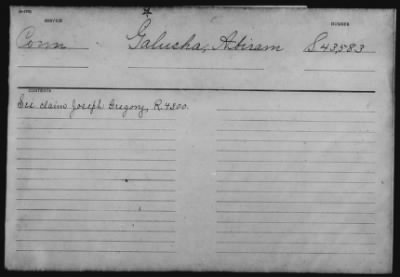 SERVICE NUMBER
Conn Galusha, Abiram S 43583
CONTENTS
See claim Joseph Gregory, R. 4300.